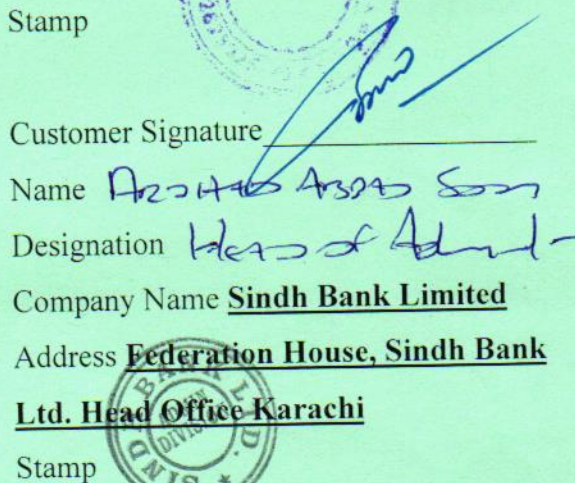 Stamp
Customer Signature
Name Arshad Abbas Soom
Designation Head of Admn
Company Name Sindh Bank Limited
Address Federation House, Sindh Bank
Ltd. Head Office Karachi
SINDH BANK LTD.
ADMN DIVISION
Stamp